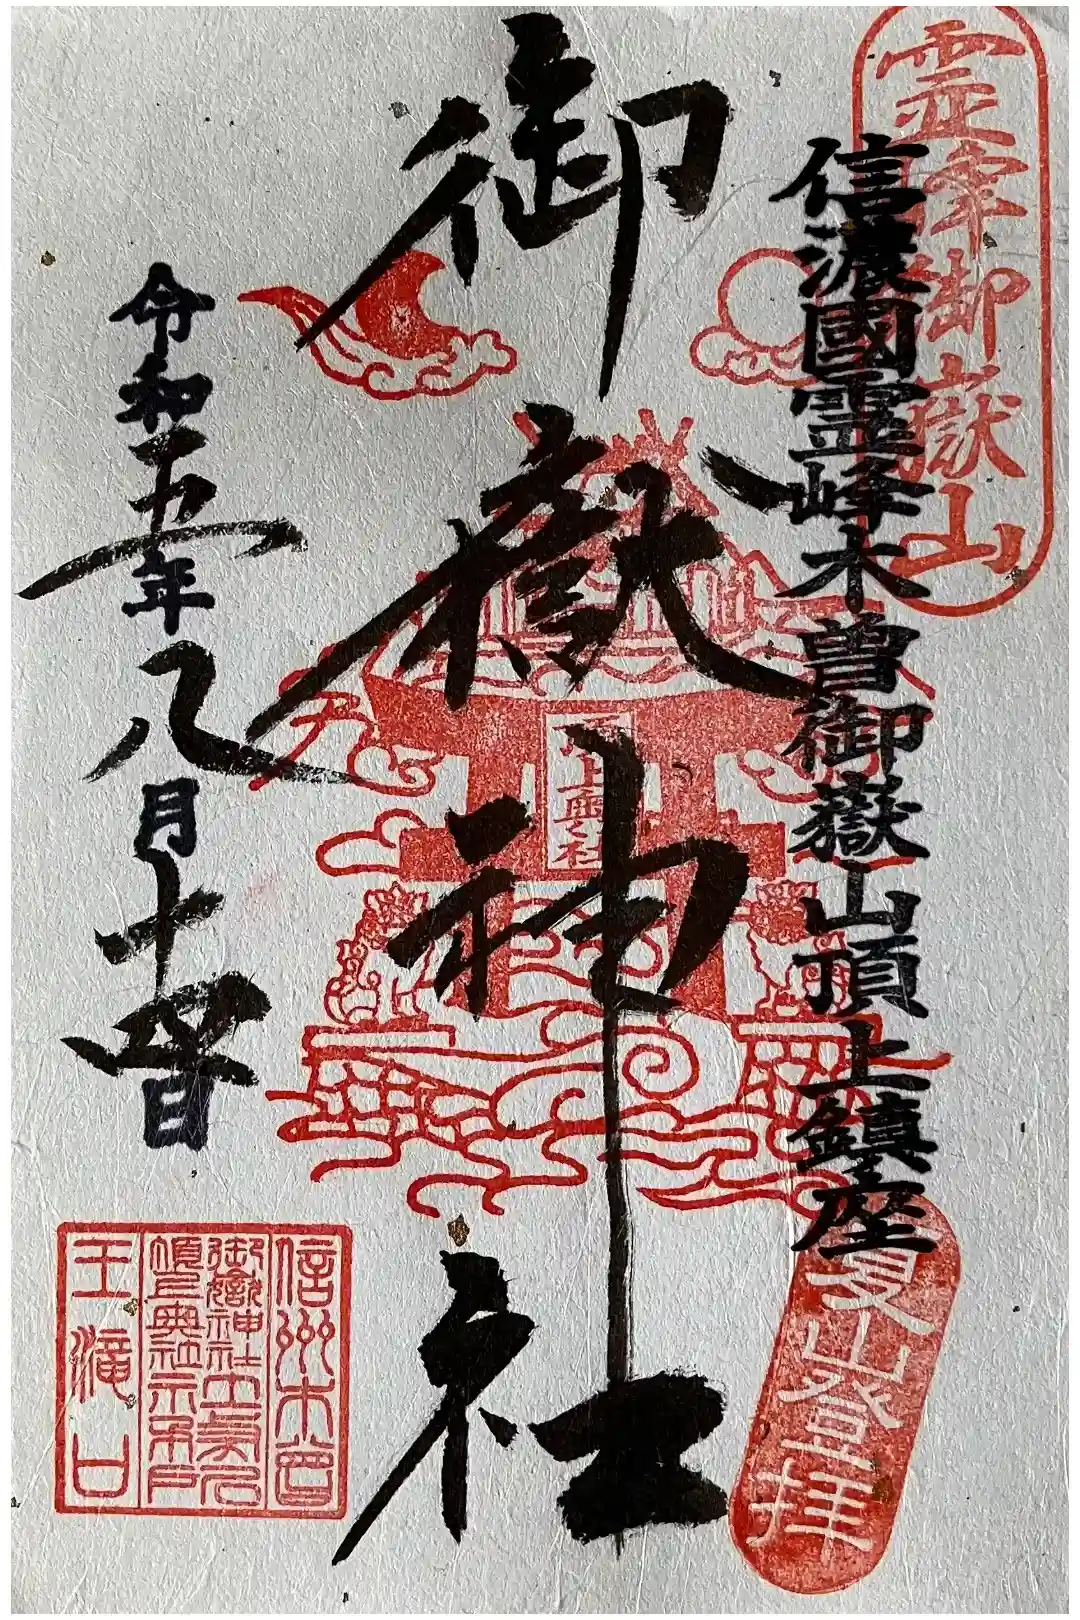 霊峯御嶽山
信濃國霊峰木曽御嶽山頂上鎮座
夏山登拝
御嶽神社
頂上奥社
令和五年八月十日
信州木曽
御嶽神社
頂上奥社
王滝口